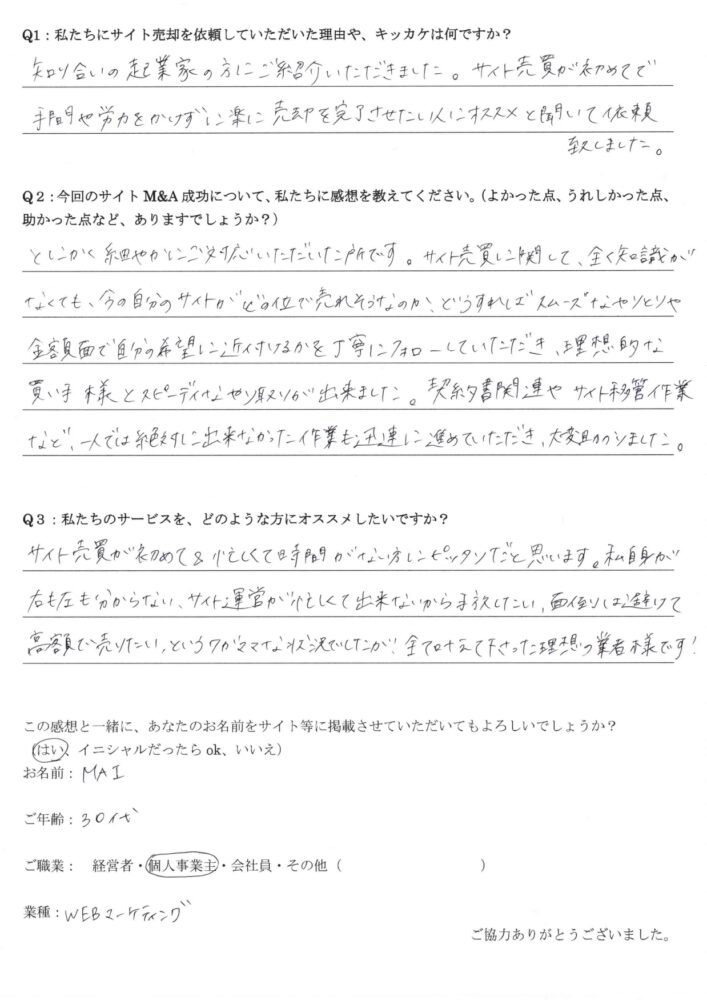 Q1：私たちにサイト売却を依頼していただいた理由や、キッカケは何ですか？
知り合いの起業家の方にご紹介いただきました。サイト売買が初めてで
手間や労力をかけずに楽に売却を完了させたい人にオススメと聞いて依頼
致しました。
Q２：今回のサイト M&A 成功について、私たちに感想を教えてください。（よかった点、うれしかった点、
助かった点など、ありますでしょうか？）
とにかく細やかにご対応いただいた所です。サイト売買に関して、全く知識が
なくても、今の自分のサイトがどの位で売れそうなのか、どうすればスムーズなやりとりや
金額面で自分の希望に近付けるかを丁寧にフォローしていただき、理想的な
買い手様とスピーディなやり取りが出来ました。契約書関連やサイト移管作業
など、一人では絶対に出来なかった作業も迅速に進めていただき、大変助かりました。
Q３：私たちのサービスを、どのような方にオススメしたいですか？
サイト売買が初めて＆忙しくて時間がない方にピッタリだと思います。私自身が
右も左も分からない、サイト運営が忙しくて出来ないから手放したい、面倒は避けて
高額で売りたい、というワガママな状況でしたが、全て叶えて下さった理想の業者様です！
この感想と一緒に、あなたのお名前をサイト等に掲載させていただいてもよろしいでしょうか？
（はい、イニシャルだったら ok、いいえ）
お名前：MAI
ご年齢：30代
ご職業：　経営者・個人事業主・会社員・その他（　　　　　　　　　　　）
業種：WEBマーケティング
ご協力ありがとうございました。